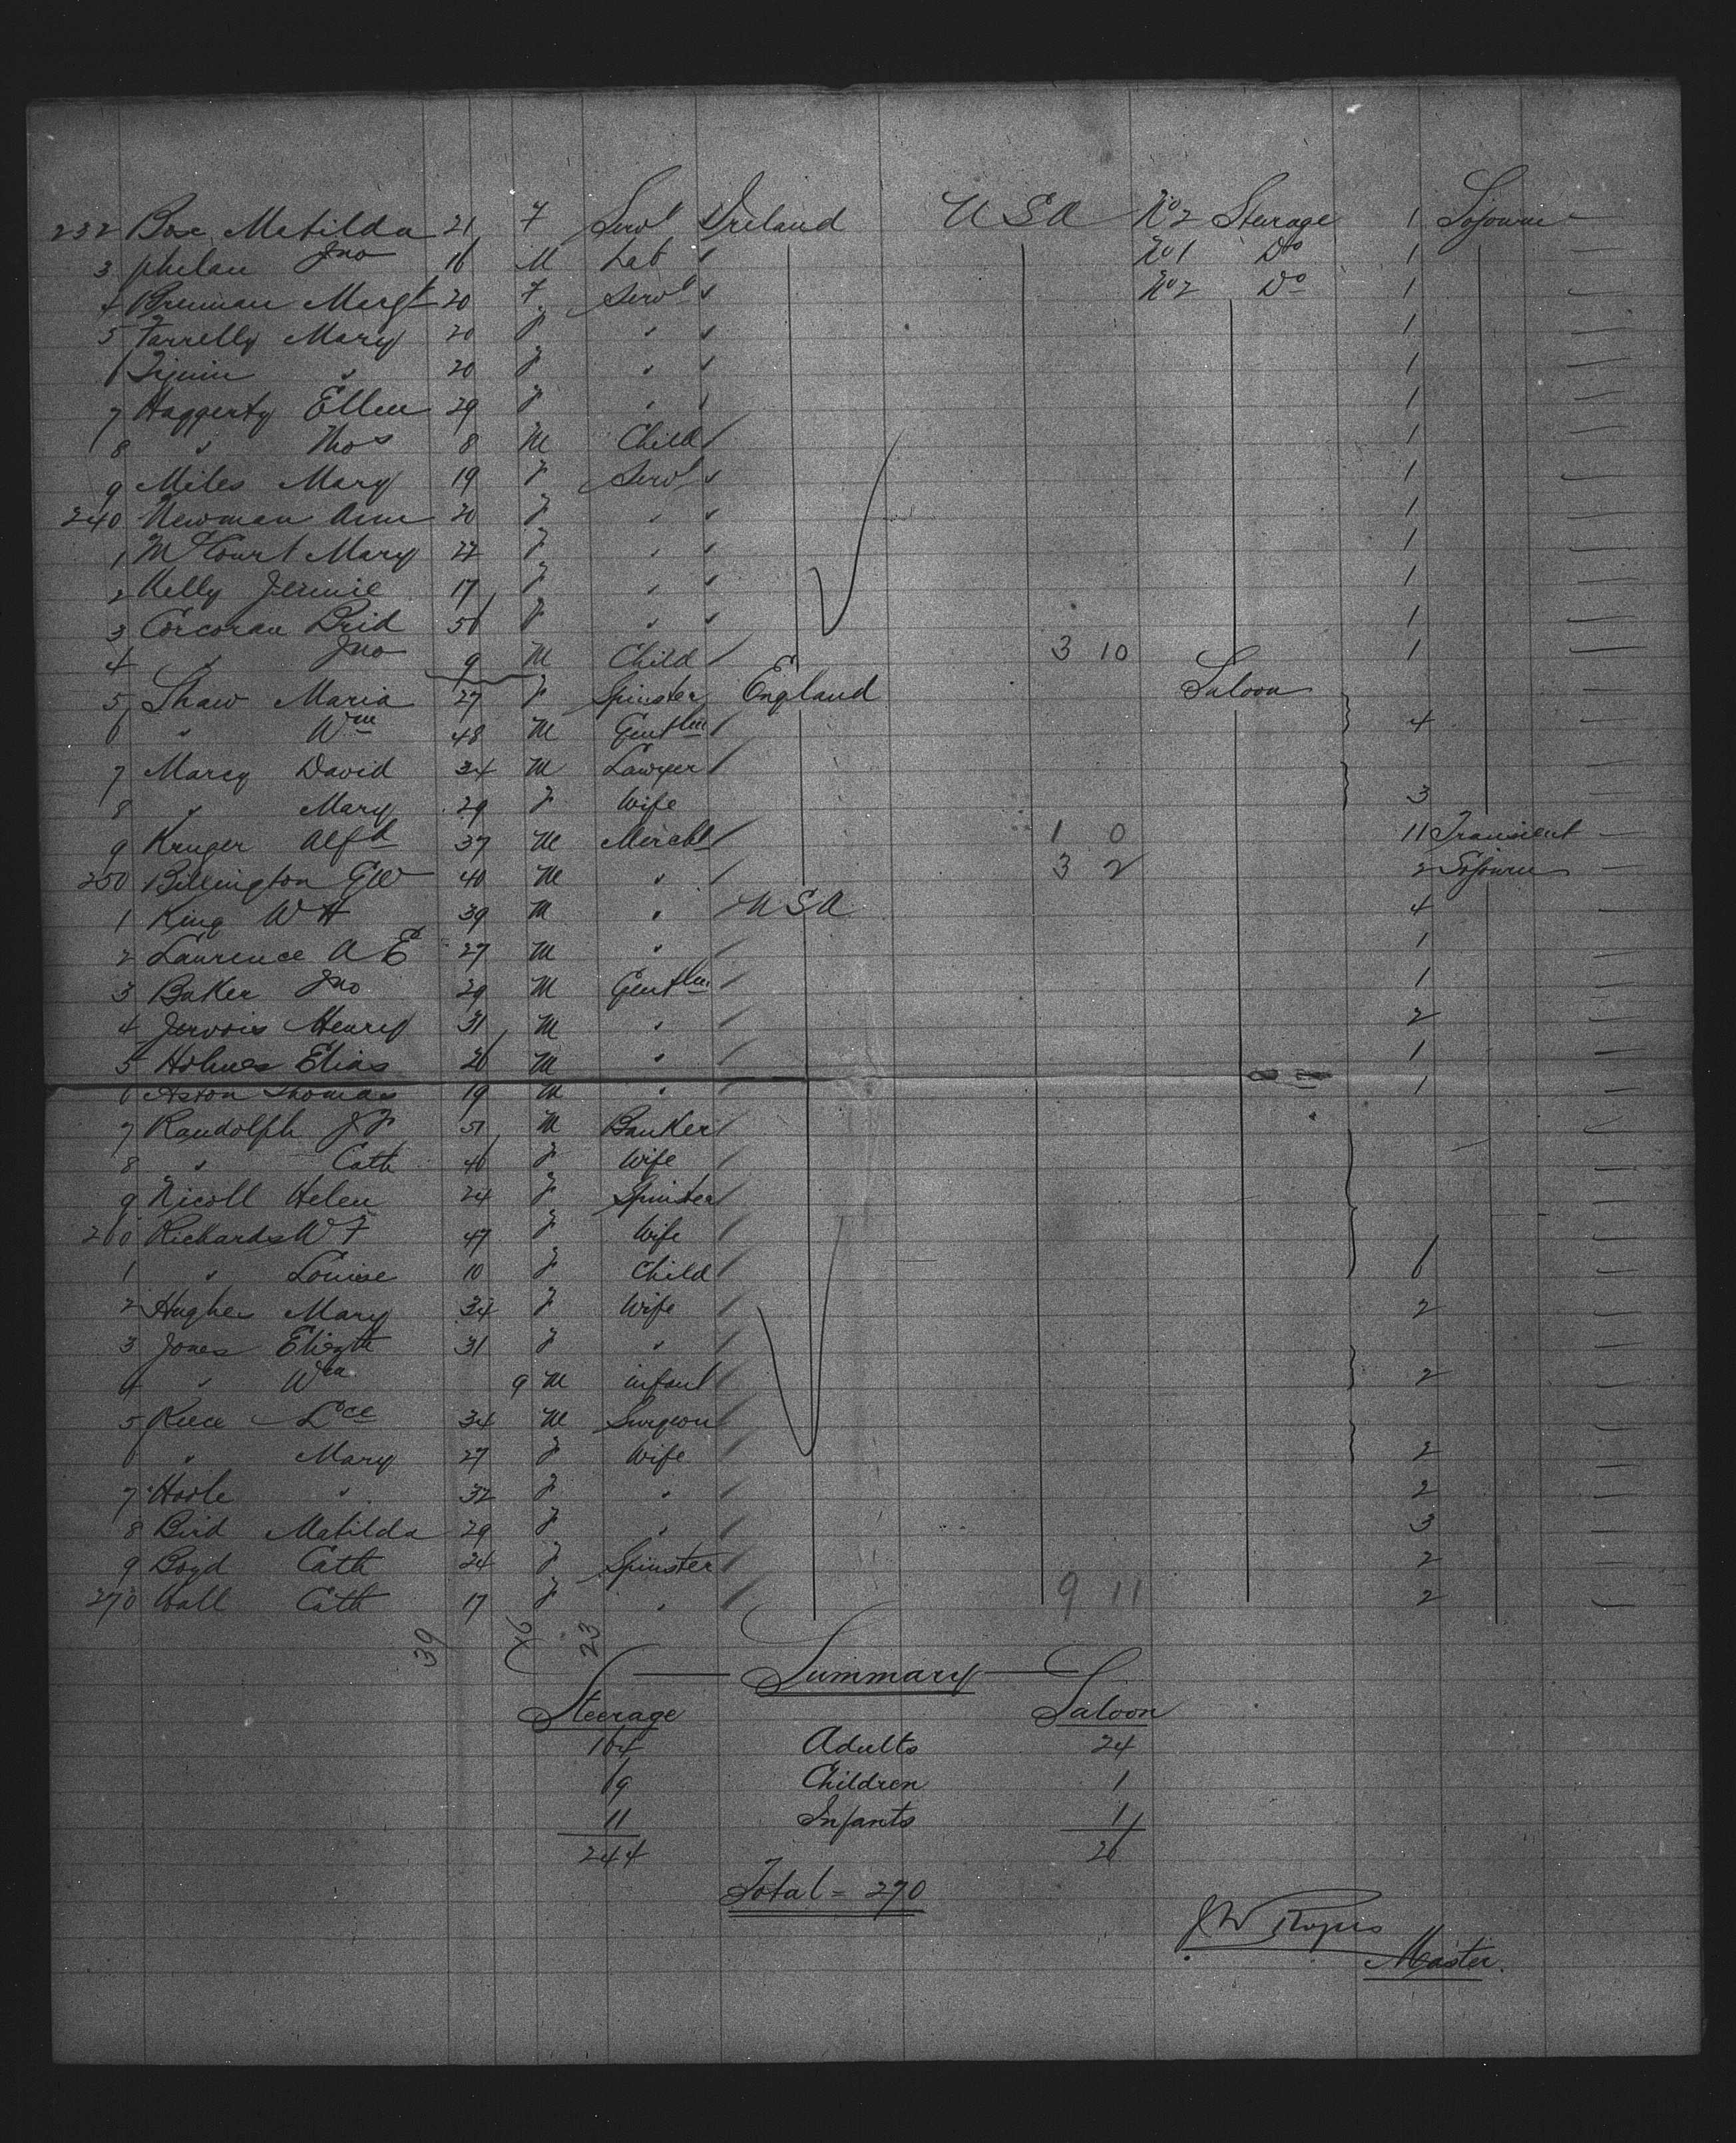 232 Box Matilda 21 F Servt Ireland USA No 2 Steerage 1 Sojourn
3 Phelan Jno 16 M Lab " No 1 Do 1
4 Brennan Margt 20 F Servt " No 2 Do 1
5 Farrelly Mary 20 F " " 1
6 " 20 F " " 1
7 Haggerty Ellen 29 F " " 1
8 " Thos 8 M Child 1
9 Miles Mary 19 F Servt " 1
240 Newman Ann 20 F " " 1
1 McCourt Mary 22 F " " 1
2 Kelly Jennie 17 F " " 1
3 Corcoran Brid 56 F " " 1
4 " Jno 9 M Child 3 10 1
5 Shaw Maria 27 F Spinster England Saloon
6 " Wm 48 M Gentlm 4
7 Marcy David 34 M Lawyer
8 " Mary 29 F Wife 3
9 Kruger Alfd 37 M Mercht 1 0 11 Transient
250 Billington GW 40 M " 3 2 2 Sojourn
1 King W H 39 M " USA 4
2 Laurence A E 27 M " 1
3 Baker Jno 29 M Gentlm 1
4 Jervois Henry 31 M " 2
5 Holmes Elias 26 M " 1
6 Aston Thomas 19 M " 1
7 Randolph J F 51 M Banker
8 " Cath 46 F Wife
9 Nicoll Helen 24 F Spinster
260 Richards W F 47 F Wife
1 " Louise 10 F Child 6
2 Hughes Mary 34 F Wife 2
3 Jones Elizth 31 F "
4 " Wm 9 M infant 2
5 Reece Lce 34 M Surgeon
6 " Mary 27 F Wife 2
7 Hoole " 32 F " 2
8 Bird Matilda 29 F " 3
9 Boyd Cath 24 F Spinster 2
270 Wall Cath 17 F " 9 11 2
39 16 23
Summary
Steerage Saloon
164 Adults 24
69 Children 1
11 Infants 1
244 26
Total = 270
J W
Master.